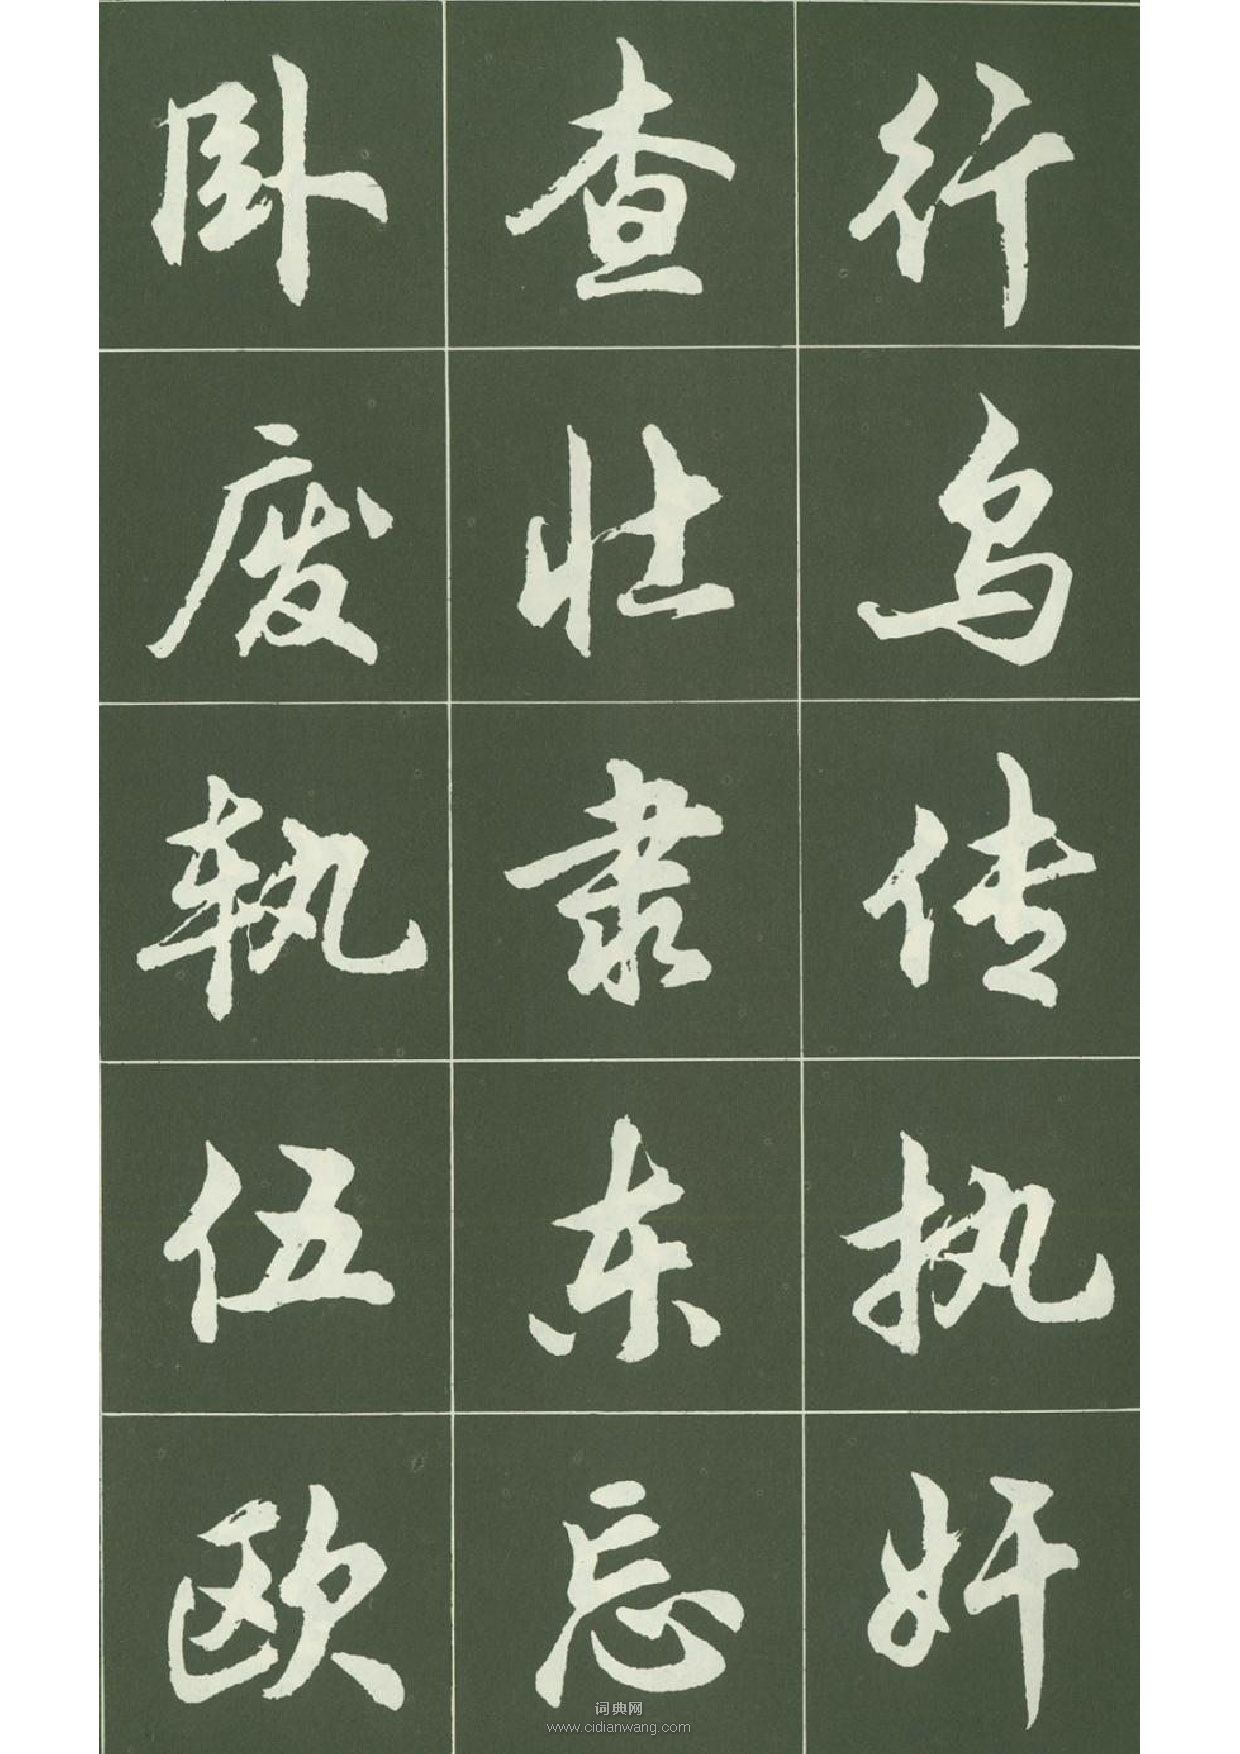 行乌传执奸
查壮隶东忘
卧废執伍欧
词典网
www.cidianwang.com